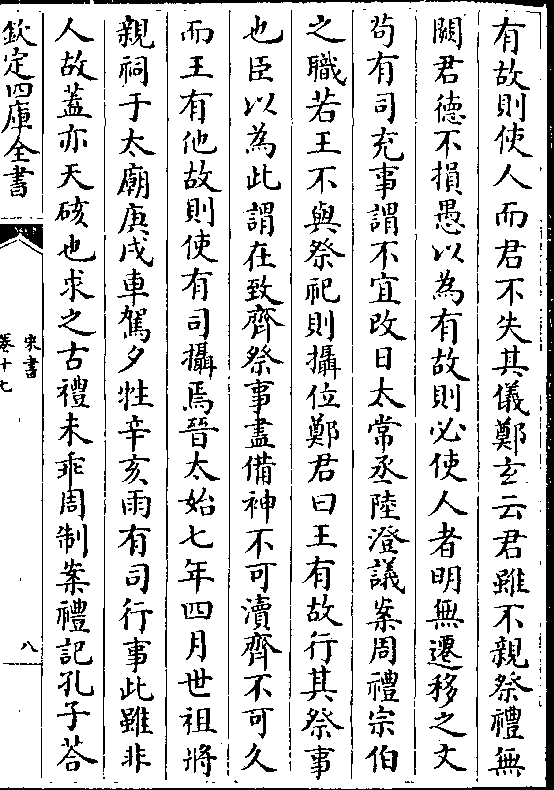 有故則使人而君不失其儀鄭玄云君雖不親祭禮無
闕君德不損愚以為有故則必使人者明無遷移之文
苟有司充事謂不宜改日太常丞陸澄議案周禮宗伯
之職若王不與祭祀則攝位鄭君曰王有故行其祭事
也臣以為此謂在致齊祭事盡備神不可瀆齊不可久
而王有他故則使有司攝焉晉太始七年四月世祖將
親祠于太廟庚戌車駕夕牲辛亥雨有司行事此雖非
人故蓋亦天硋也求之古禮未乖周制案禮記孔子荅
欽定四庫全書
宋書
卷十七
八